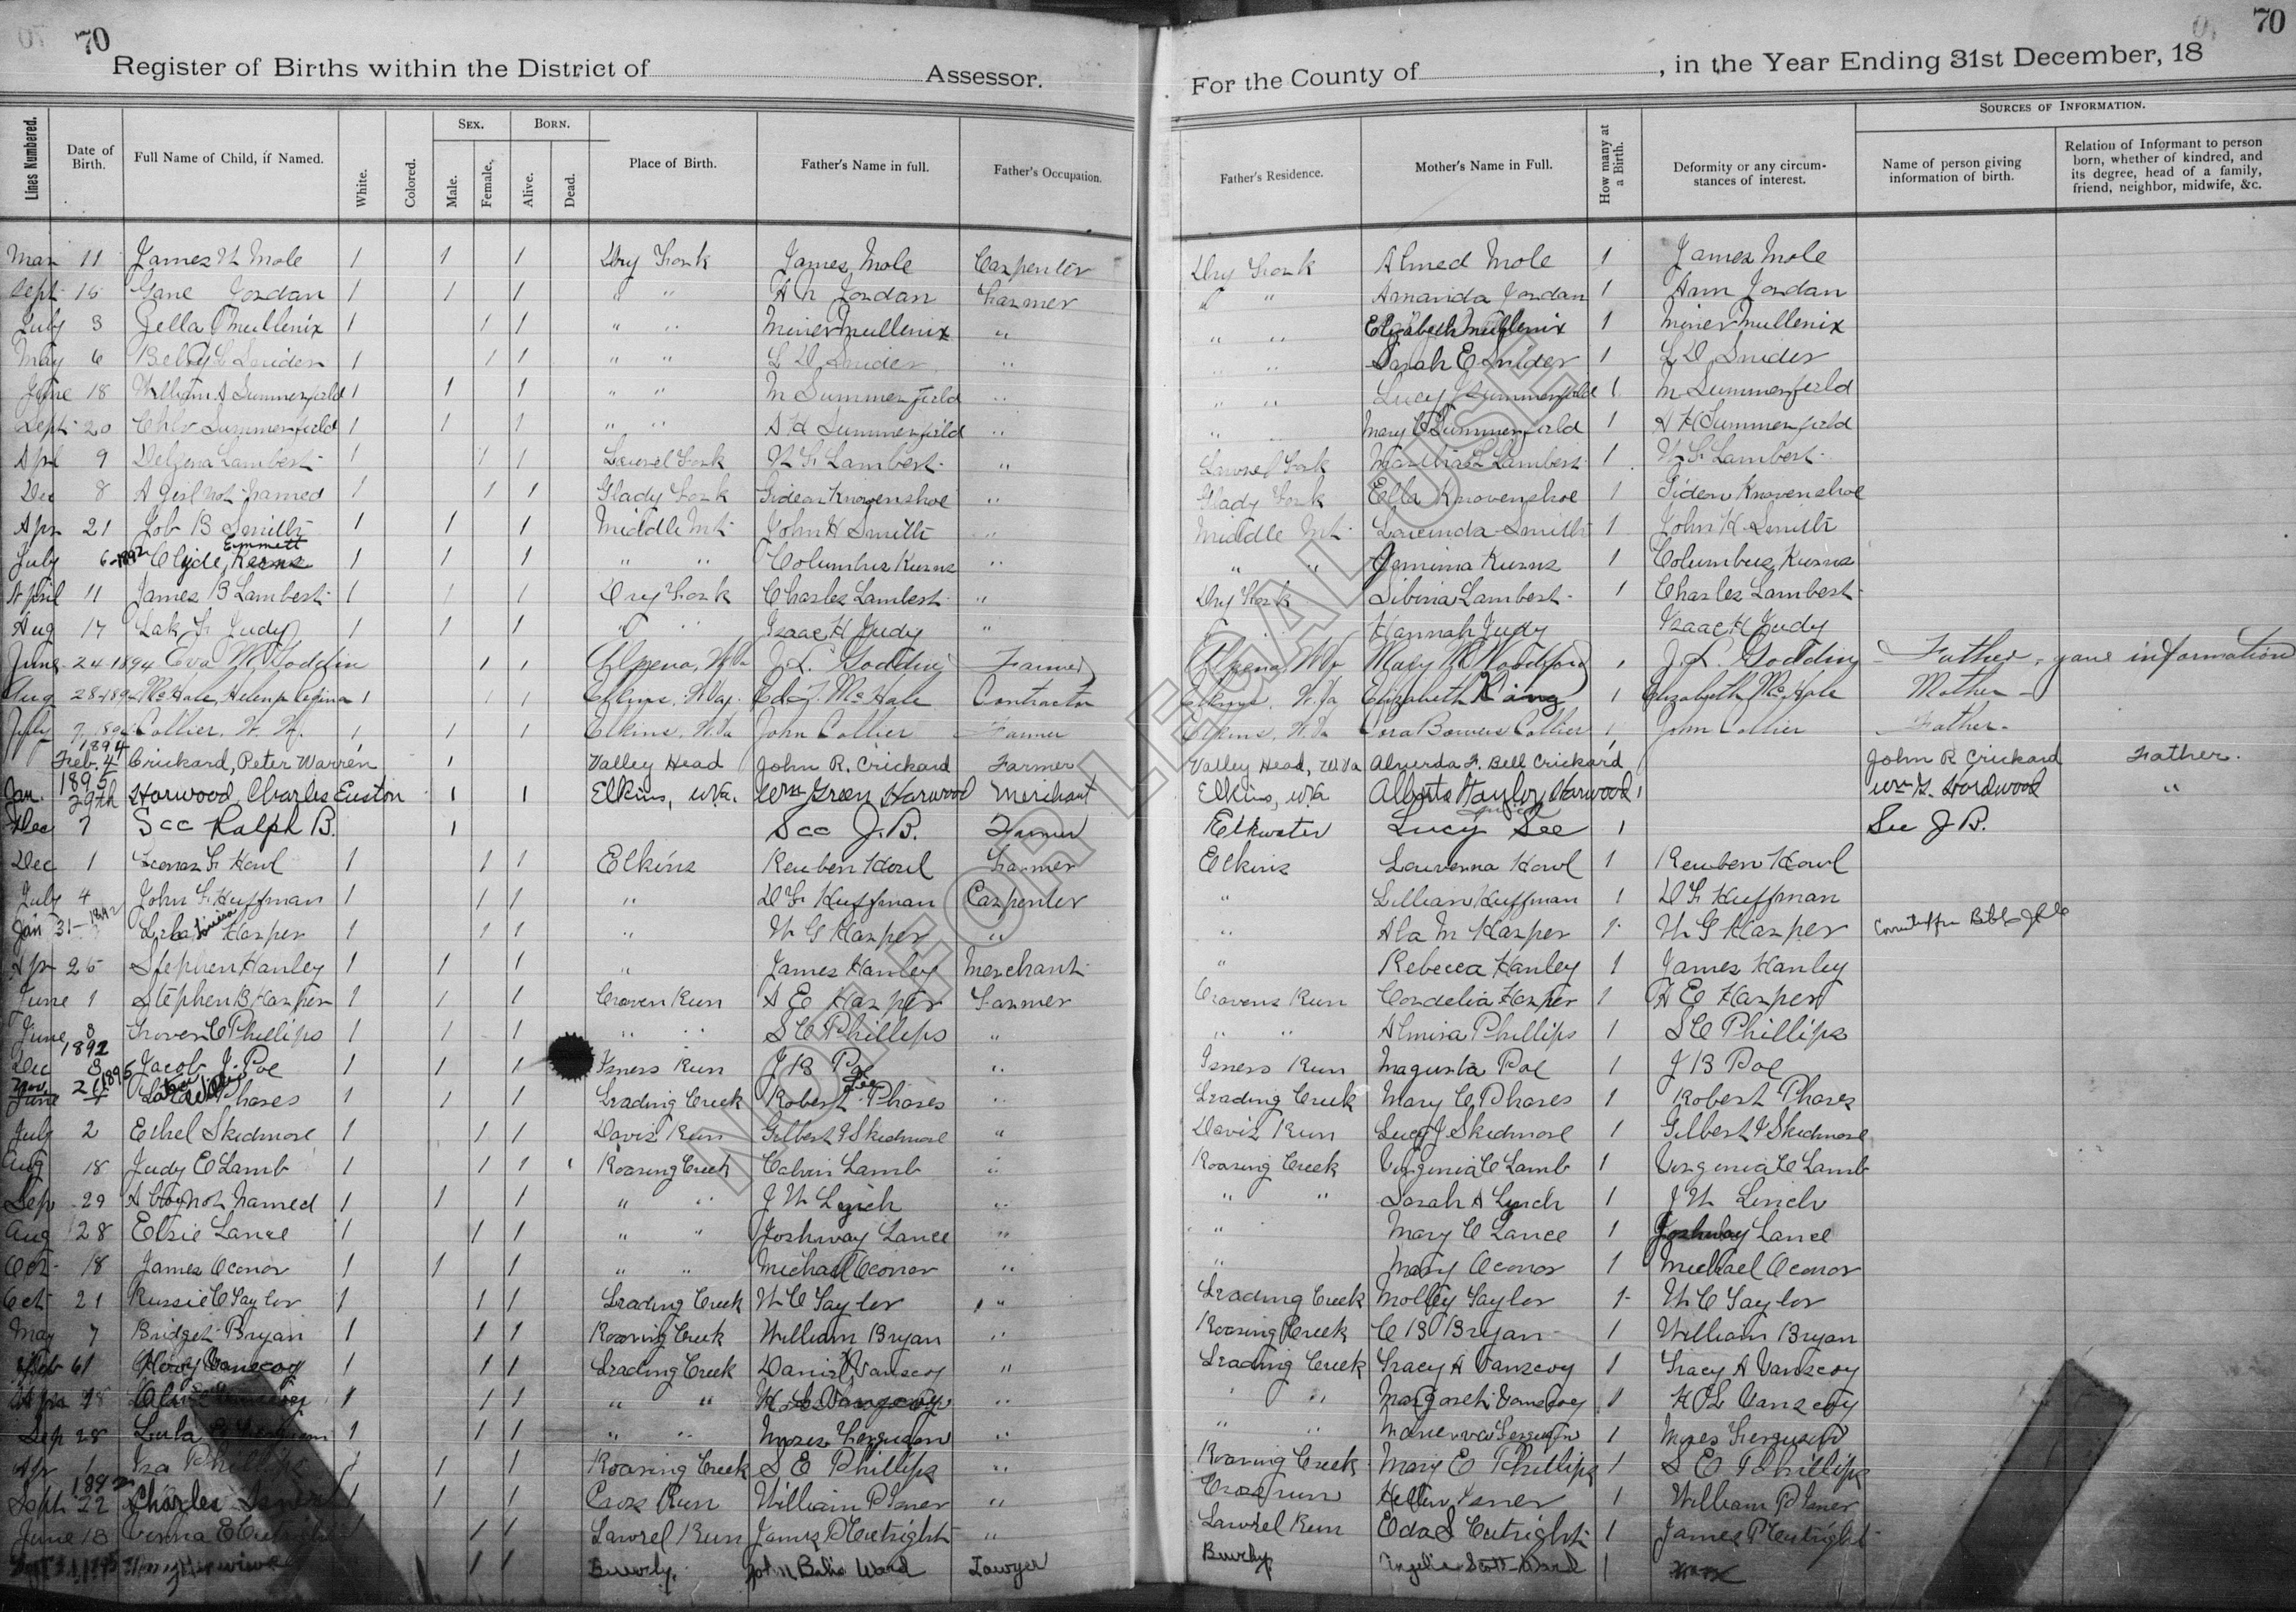 70
70
Register of Births within the District of Assessor.
For the County of , in the Year Ending 31st December, 18
Lines Numbered. Date of Birth. Full Name of Child, if Named. White. Colored. SEX. Male. Female. BORN. Alive. Dead. Place of Birth. Father's Name in full. Father's Occupation. Father's Residence. Mother's Name in Full. How many at a Birth. Deformity or any circumstances of interest. SOURCES OF INFORMATION. Name of person giving information of birth. Relation of Informant to person born, whether of kindred, and its degree, head of a family, friend, neighbor, midwife, &c.
Mar 11 James W Mole 1 1 1 Dry Fork James Mole Carpenter Dry Fork Mole 1 James Mole
Sept 15 Jordan 1 1 1 " " Jordan Farmer " " Amanda Jordan 1 Jordan
July 3 Zella Mullenix 1 1 1 " " Miner Mullenix " " " Elizabeth Mullenix 1 Miner Mullenix
May 6 Betsy L Snider 1 1 1 " " L D Snider " " " Sarah E Snider 1 L D Snider
June 18 William A Summerfield 1 1 1 " " M Summerfield " " " Lucy J Summerfield 1 M Summerfield
Sept 20 Summerfield 1 1 1 " " A H Summerfield " " " Mary C Summerfield 1 A H Summerfield
Apl 9 Delzena Lambert 1 1 1 Laurel Fork W F Lambert " Laurel Fork Lambert 1 W F Lambert
Dec 8 A girl not named 1 1 1 Glady Fork Gideon Knovenshoe " Glady Fork Ella Knovenshoe 1 Gideon Knovenshoe
Apr 21 Job B Smith 1 1 1 Middle Mt John H Smith " Middle Mt Lavinda Smith 1 John H Smith
July 6-1892 Clyde Emmett Kerns 1 1 1 " " Columbus Kerns " " " Jemima Kerns 1 Columbus Kerns
April 11 James B Lambert 1 1 1 Dry Fork Charles Lambert " Dry Fork Sibina Lambert 1 Charles Lambert
Aug 17 Judy 1 1 1 " " Isaac H Judy " " " Hannah Judy Isaac H Judy
June 24-1894 Eva M Goddin 1 1 Alpena, W Va J. L. Goddin Farmer Alpena W Va Mary M Woodford 1 J. L. Goddin Father gave information
Aug 28-189 McHale, Helena Regina 1 1 1 Elkins, W. Va. Ed. F. McHale Contractor Elkins, W. Va Elizabeth King 1 Elizabeth McHale Mother
July 7, 189 Collier, W. W. 1 1 1 Elkins, W. Va John Collier Farmer Elkins, W. Va Cora Bowers Collier 1 John Collier Father.
1894 Feb. 4 Crickard, Peter Warren 1 Valley Head John R. Crickard Farmer Valley Head, W. Va Almerda F. Bell Crickard 1 John R Crickard Father.
1895 Jan. 29th Harwood, Charles Euston 1 1 Elkins, W Va. Wm Green Harwood Merchant Elkins, W Va Alberta Taylor Harwood 1 Wm G. Hardwood "
Dec 7 See Ralph B. 1 See J. B. Farmer Elkwater Lucy See 1 See J B.
Dec 1 F Howl 1 1 1 Elkins Reuben Howl Farmer Elkins Lauvenna Howl 1 Reuben Howl
July 4 John F Huffman 1 1 1 " D F Huffman Carpenter " Lillian Huffman 1 D F Huffman
Jan 31-1892 Harper 1 1 1 " W G Harper " " Ala M Harper 1 W G Harper
Apr 25 Stephen Hanley 1 1 1 " James Hanley Merchant " Rebecca Hanley 1 James Hanley
June 1 Stephen B Harper 1 1 1 Craven Run A E Harper Farmer Cravens Run Cordelia Harper 1 A E Harper
June 8 Grover C Phillips 1 1 1 " " S C Phillips " " " Almira Phillips 1 S C Phillips
1892 Dec 8 Jacob J. Poe 1 1 1 Isners Run J B Poe " Isners Run Magusta Poe 1 J B Poe
Nov 26 1895 Phares 1 1 1 Leading Creek Robert Lee Phares " Leading Creek Mary C Phares 1 Robert Phares
July 2 Ethel Skidmore 1 1 1 Davis Run Gilbert I Skidmore " Davis Run Lucy J Skidmore 1 Gilbert I Skidmore
Aug 18 Judy E Lamb 1 1 1 Roaring Creek Calvin Lamb " Roaring Creek Virginia C Lamb 1 Virginia C Lamb
Sep 29 A boy not named 1 1 1 " " J W Lynch " " " Sarah A Lynch 1 J W Linch
Aug 28 Elsie Lance 1 1 1 " " Joshway Lance " " Mary C Lance 1 Joshway Lance
Oct 18 James Oconor 1 1 1 " " Michael Oconor " " Mary Oconor 1 Michael Oconor
Oct 21 Russie C Taylor 1 1 1 Leading Creek W C Taylor " Leading Creek Molley Taylor 1 W C Taylor
May 7 Bridget Bryan 1 1 1 Roaring Creek William Bryan " Roaring Creek C B Bryan 1 William Bryan
Feb Vanscoy 1 1 1 Leading Creek Daniel Vanscoy " Leading Creek Tracy A Vanscoy 1 Tracy A Vanscoy
Apr 18 1 1 1 " " " " " Margaret Vanscoy 1 Vanscoy
Sep 28 Lula 1 1 1 " " Moses Ferguson " " " Ferguson 1 Moses Ferguson
Apr 1 Ira Phillips 1 1 1 Roaring Creek S E Phillips " Roaring Creek Mary E Phillips 1 S E Phillips
1892 Sept 22 Charles Isner 1 1 1 Cross Run William P Isner " Cross run Isner 1 William P Isner
June 13 Cutright 1 1 1 Laurel Run James P Cutright " Laurel Run Eda S Cutright 1 James P Cutright
1 1 Beverly. Ward Lawyer Beverly Scott Ward 1
NOT FOR LEGAL USE